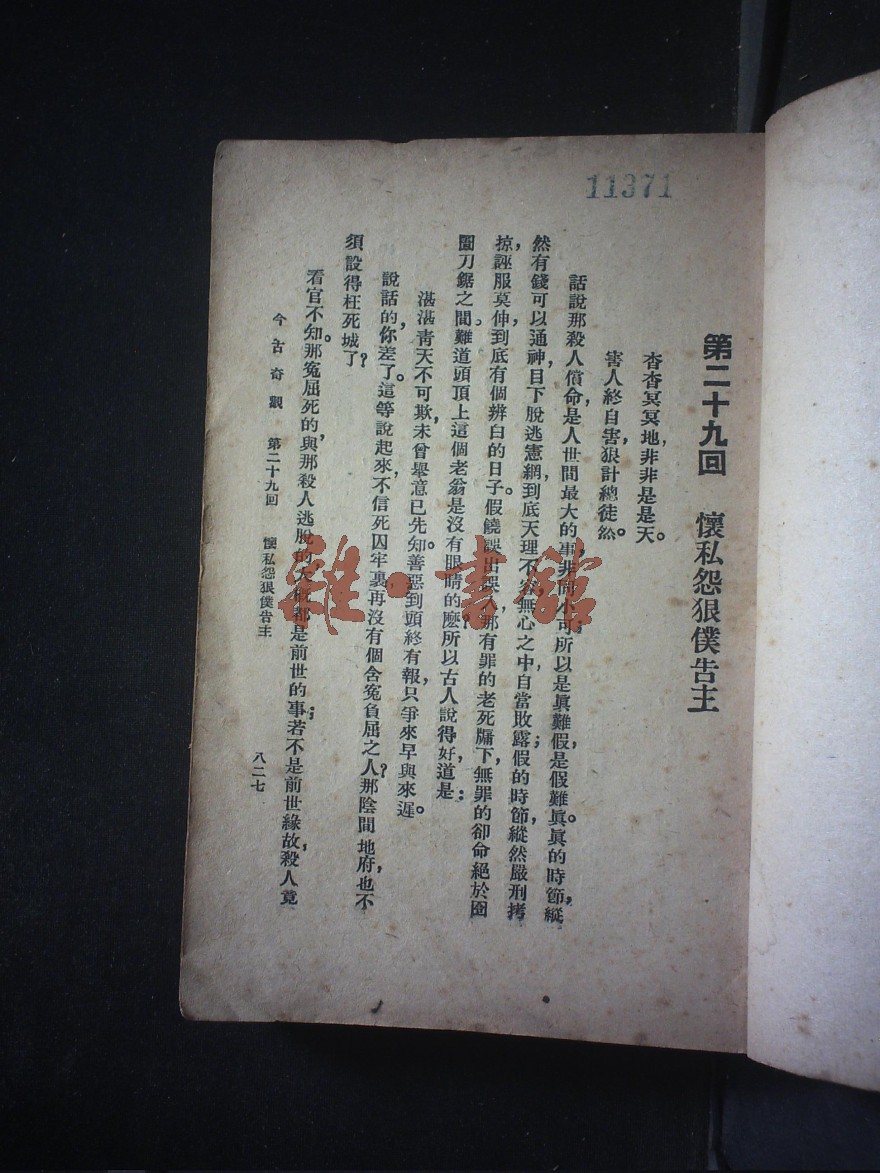 11371
第二十九回　懷私怨狠僕告主
杳杳冥冥地，非非是是天。
害人終自害，狠計總徒然。
話說那殺人償命，是人世間最大的事，非同小可，所以是眞難假，是假難眞。眞的時節，縱
然有錢可以通神，目下脫逃憲網，到底天理不容，無心之中，自當敗露；假的時節，縱然嚴刑拷
掠，誣服莫伸，到底有個辨白的日子。假饒誤出誤入，那有罪的老死牖下，無罪的卻命絕於囹
圄刀鋸之間。難道頭頂上這個老翁是沒有眼睛的麽？所以古人說得好，道是：
湛湛青天不可欺，未曾舉意已先知。善惡到頭終有報，只爭來早與來遲。
說話的，你差了。這等說起來，不信死囚牢裏，再沒有個含冤負屈之人？那陰間地府，也不
須設得枉死城了？
看官不知。那冤屈死的，與那殺人逃脫的，大槪都是前世的事；若不是前世緣故，殺人竟
今古奇觀　第二十九回　懷私怨狠僕告主　八二七
雜·書館